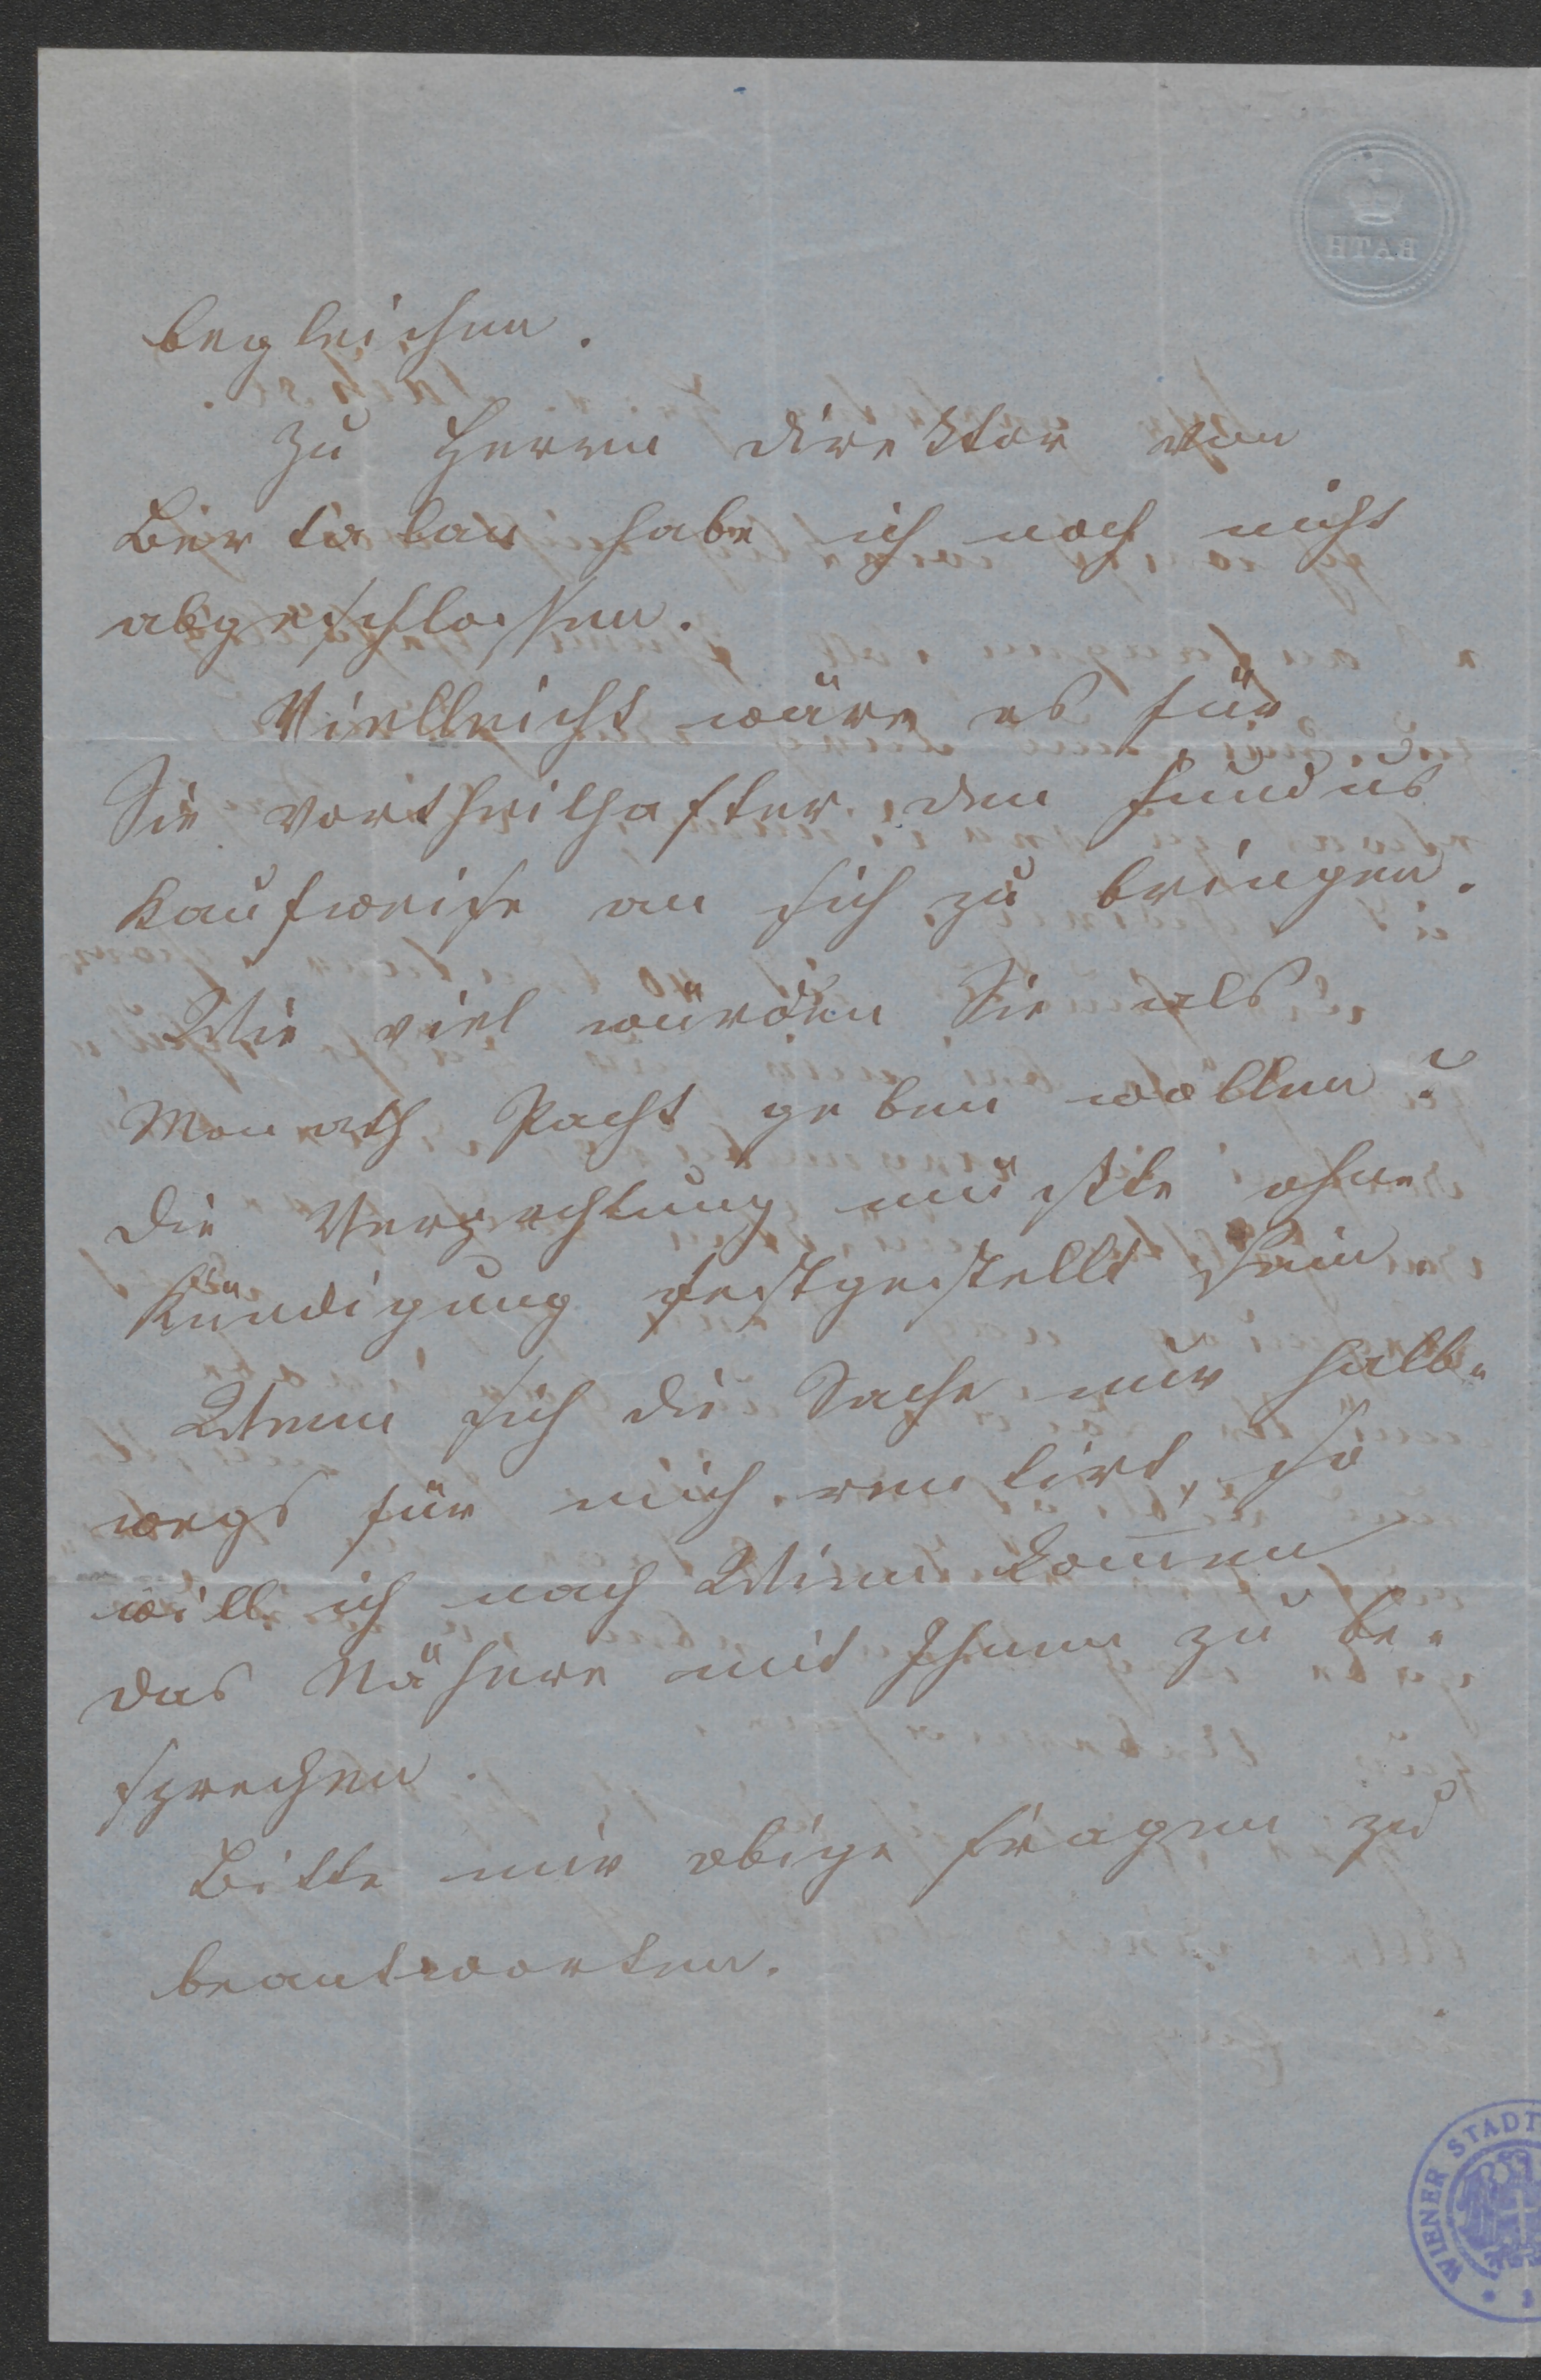 BATH
begleichen.
Zu Herrn Direktor von
habe ich noch nicht
abgeschlossen.
Vielleicht wäre es für
Sie vortheilhafter den Fundus
kaufweise an sich zu bringen.
Wie viel würden Sie als
Monath Pacht geben wollen?
Die Verpachtung müßte ohne
Kündigung festgestellt sein.
Wenn sich die Sache nur halb-
wegs für mich rentirt, so
will ich nach Wien kommen
das Nähere mit Ihnen zu be-
sprechen.
Bitte mir obige Fragen zu
beantworten.
WIENER STADT